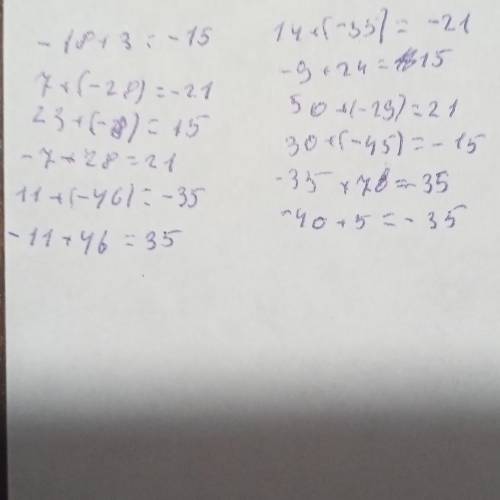 -18+3=-15
7+(-28)=-21
23+(-8)=15
-7+28=21
11+(-46)=-35
-11+46=35
14+(-35)=-21
-9+24=15
50+(-29)=21
30+(-45)=-15
-40+5=-35